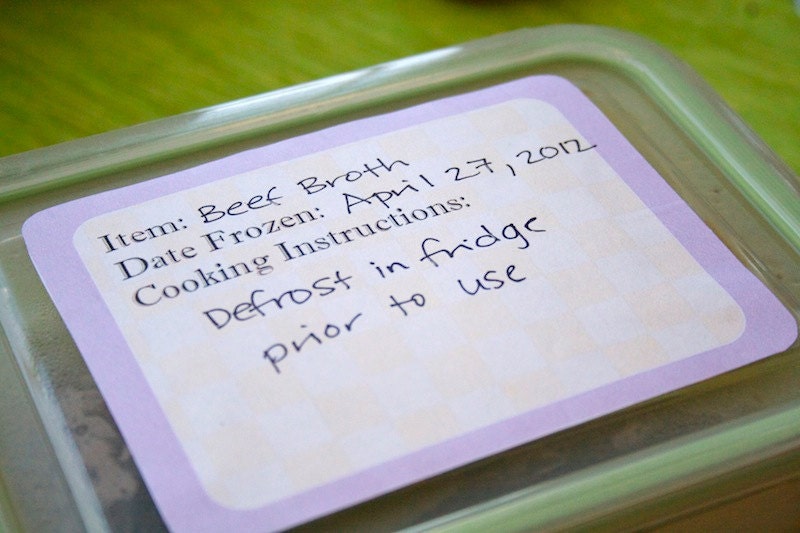 Item: Beef Broth
Date Frozen: April 27, 2012
Cooking Instructions:
Defrost in fridge
prior to use